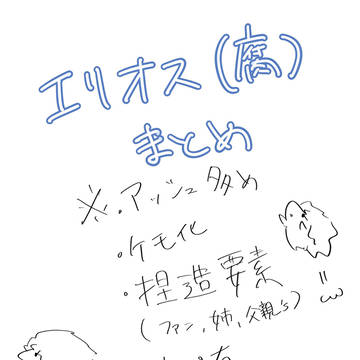 エリオス(腐)
まとめ
※・アッシュ多め
・ケモ化
・捏造要素
(ファン,姉,父親's)